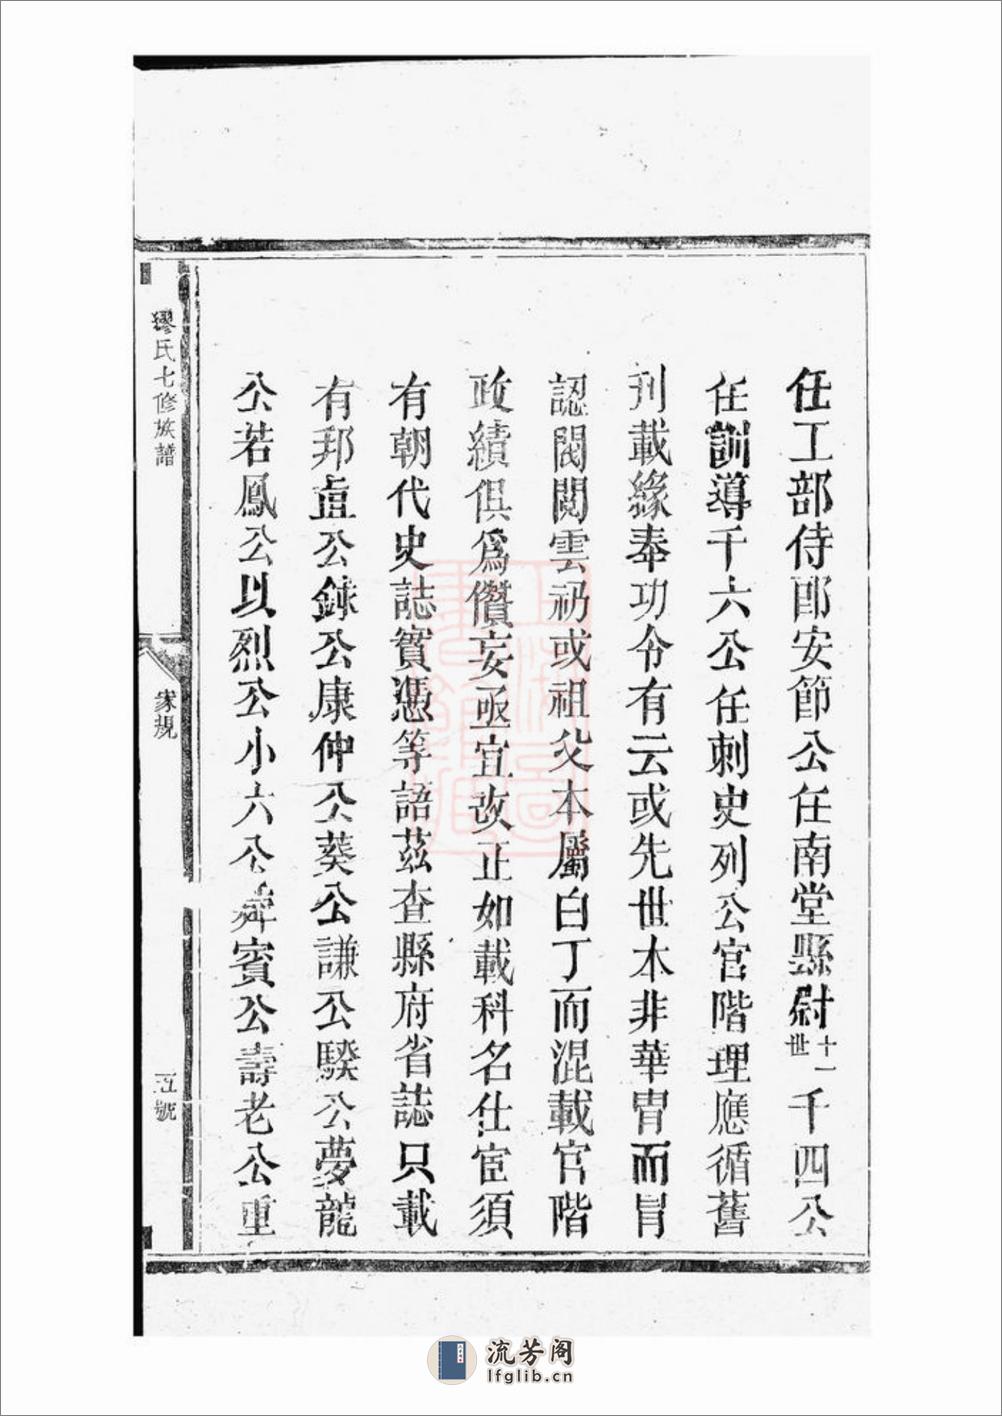 任工部侍郎安節公任南堂縣尉十一世千四公
任訓導千六公任刺史列公官階理應循舊
刋載緣奉功令有云或先世本非華冑而冒
認閥閱雲礽或祖父本屬白丁而混載官階
政績俱爲僭妄亟宜改正如載科名仕宦須
有朝代史誌實憑等語茲查縣府省誌只載
有邦直公銶公康仲公葵公謙公騤公夢龍
公若鳳公以烈公小六公 賓公壽老公重
繆氏七修族譜
家規
五號
流芳阁
lfglib.cn